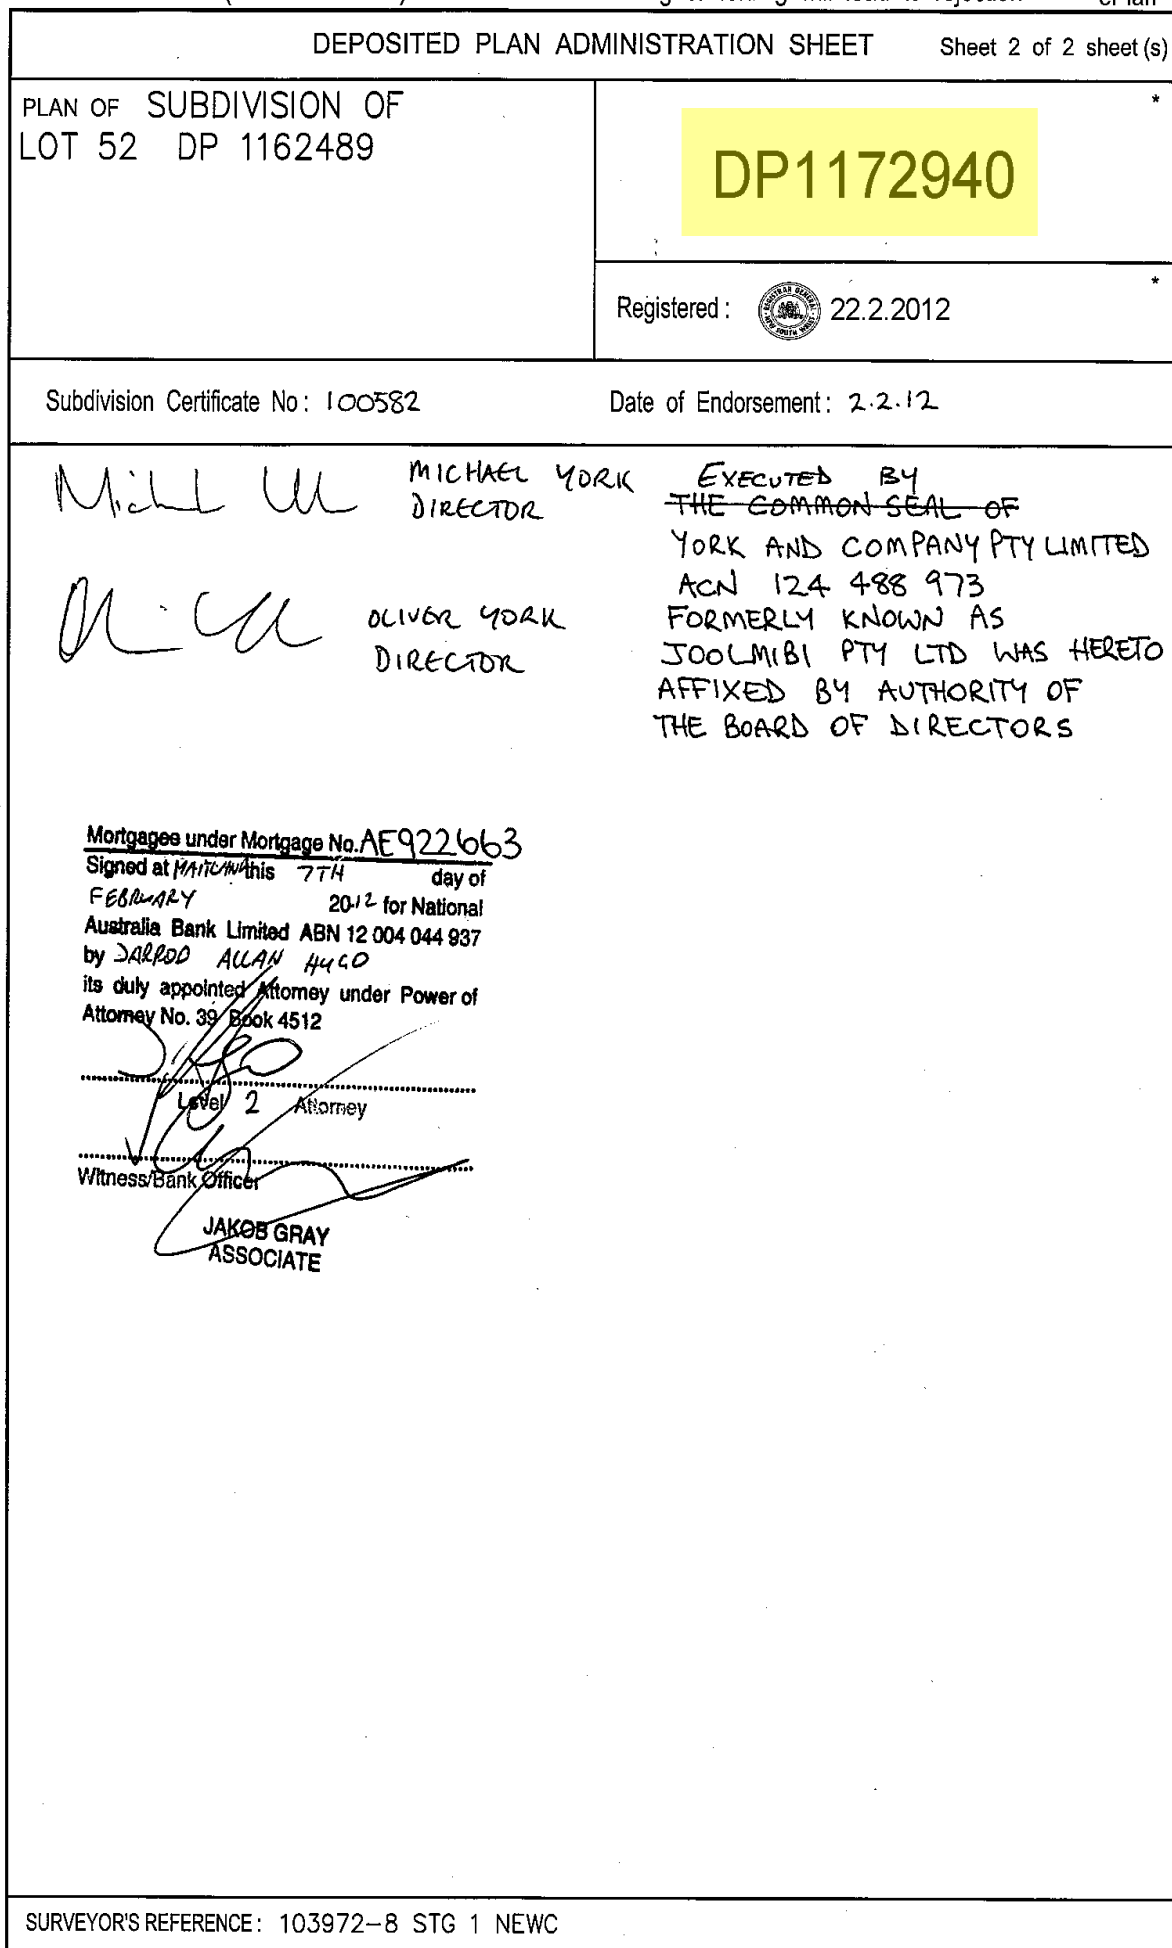 ePlan
DEPOSITED PLAN ADMINISTRATION SHEET Sheet 2 of 2 sheet(s)
PLAN OF SUBDIVISION OF
LOT 52 DP 1162489
*
DP1172940
*
Registered : 22.2.2012
Subdivision Certificate No : 100582 Date of Endorsement : 2.2.12
MICHAEL YORK
DIRECTOR
OLIVER YORK
DIRECTOR
EXECUTED BY
THE COMMON SEAL OF
YORK AND COMPANY PTY LIMITED
ACN 124 488 973
FORMERLY KNOWN AS
JOOLMIBI PTY LTD WAS HERETO
AFFIXED BY AUTHORITY OF
THE BOARD OF DIRECTORS
Mortgagee under Mortgage No. AE922663
Signed at MAITLAND this 7TH day of
FEBRUARY 2012 for National
Australia Bank Limited ABN 12 004 044 937
by DARROD ALLAN HUGO
its duly appointed Attorney under Power of
Attorney No. 39 Book 4512
Level 2 Attorney
Witness/Bank Officer
JAKOB GRAY
ASSOCIATE
SURVEYOR'S REFERENCE : 103972-8 STG 1 NEWC